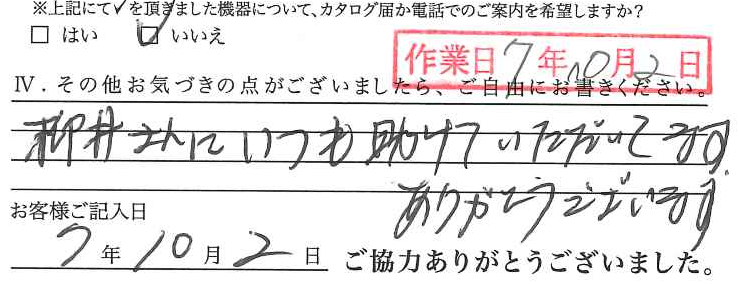 ※上記にて✓を頂きました機器について、カタログ届か電話でのご案内を希望しますか?
□ はい ☑ いいえ
作業日 7年10月2日
Ⅳ. その他お気づきの点がございましたら、ご自由にお書きください。
柳井さんにいつも助けていただいてます
ありがとうございます
お客様ご記入日
7年10月2日 ご協力ありがとうございました。